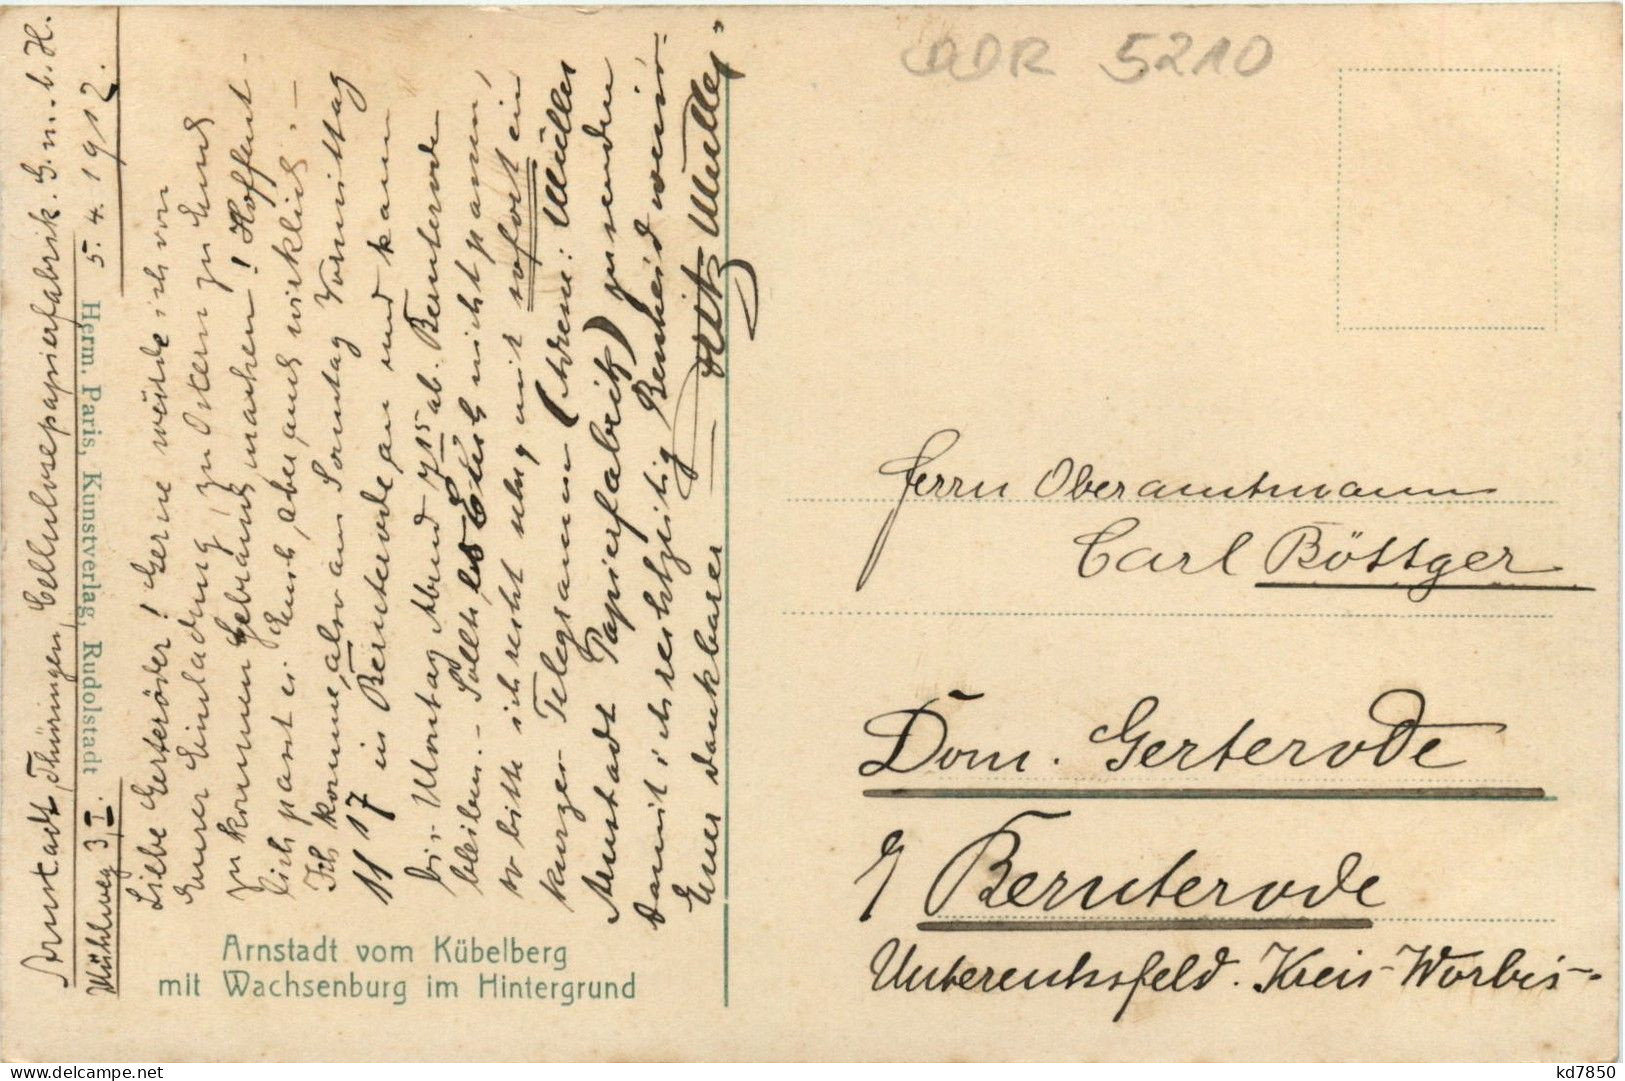 Arnstadt, Thüringen, Cellulosepapierfabrik. G. m. b. H.
Mühlweg 3, I. 5. 4. 1912.
Liebe Gerteröder! Gerne würde ich von
Eurer Einladung, zu Ostern zu Euch
zu kommen Gebrauch machen! Hoffent-
lich passt es Euch, aber auch wirklich. –
Ich komme, also am Sonntag Vormittag
11 17 in Bernterode an und kann
bis Montag Abend 7 15 ab Bernterode
bleiben. – Sollte es Euch nicht passen,
so bitte ich recht sehr, mir sofort ein
kurzes Telegramm (Adresse: Müller
Arnstadt Papierfabrik) zu senden
damit ich rechtzeitig Bescheid weiß.
Euer dankbarer Fritz Müller
Herm. Paris, Kunstverlag, Rudolstadt
Arnstadt vom Kübelberg
mit Wachsenburg im Hintergrund
DDR 5210
Herrn Oberamtmann
Carl Böttger
Dom. Gerterode
Bernterode
Untereichsfeld. Kreis Worbis
kd7850